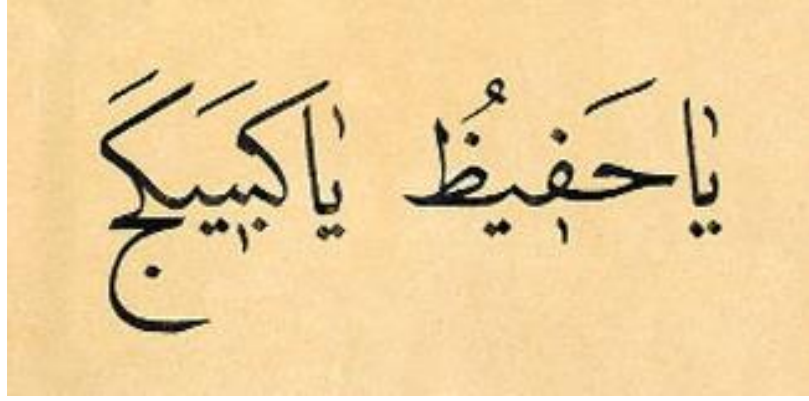 يٰا حَفٖيظُ يٰا كَبٖيكَج